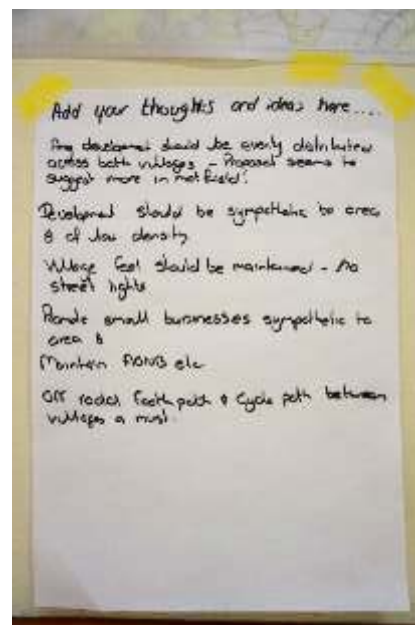 Add your thoughts and ideas here....
Any development should be evenly distributed
across both villages - Proposal seems to
suggest more in
Development should be sympathetic to area
& of low density
Village feel should be maintained - no
street lights
Promote small businesses sympathetic to
area &
Maintain AONB etc
Off road footpath & Cycle path between
villages a must.